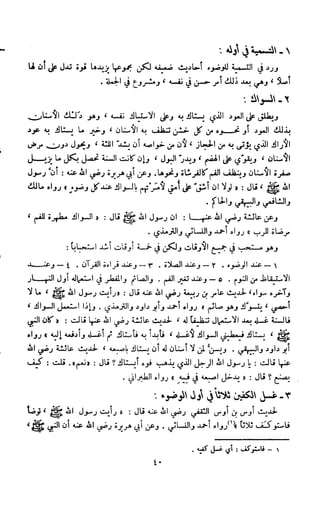 ١ - التسمية في أوله :
ورد في التسمية للوضوء أحاديث ضعيفة لكن مجموعها يزيدها قوة تدل على أن لها
أصلا ، وهي بعد ذلك أمر حسن في نفسه ، ومشروع في الجملة .
٢ - السواك :
ويطلق على العود الذي يستاك به وعلى الاستياك نفسه ، وهو دلك الأسنان
بذلك العود أو نحوه من كل خشن تنظف به الأسنان ، وخير ما يستاك به عود
الأراك الذي يؤتى به من الحجاز ، لأن من خواصه أن يشد اللثة ، ويحول دون مرض
الأسنان ، ويقوي على الهضم ، ويدر البول ، وإن كانت السنة تحصل بكل ما يزيل
صفرة الأسنان وينظف الفم كالفرشاة ونحوها . وعن أبي هريرة رضي الله عنه : أن رسول
الله ﷺ ، قال : « لولا أن أشق على أمتي لأمرتهم بالسواك عند كل وضوء » رواه مالك
والشافعي والبيهقي والحاكم .
وعن عائشة رضي الله عنها : ان رسول الله ﷺ قال : « السواك مطهرة للفم ،
مرضاة للرب » رواه أحمد والنسائي والترمذي .
وهو مستحب في جميع الأوقات ولكن في خمسة أوقات أشد استحبابا :
١ - عند الوضوء . ٢ - وعند الصلاة . ٣ - وعند قراءة القرآن . ٤ - وعند
الاستيقاظ من النوم . ٥ - وعند تغير الفم . والصائم والمفطر في استعماله أول النهار
وآخره سواء ، لحديث عامر بن ربيعة رضي الله عنه قال : « رأيت رسول الله ﷺ ، ما لا
أحصي ، يتسوك وهو صائم » رواه أحمد وأبو داود والترمذي . وإذا استعمل السواك ،
فالسنة غسله بعد الاستعمال تنظيفا له ، لحديث عائشة رضي الله عنها قالت : « كان النبي
ﷺ ، يستاك فيعطيني السواك لأغسله ، فأبدأ به فأستاك ثم أغسله وأدفعه إليه » رواه
أبو داود والبيهقي . ويسن لمن لا أسنان له أن يستاك بأصبعه ، لحديث عائشة رضي الله
عنها قالت : يا رسول الله الرجل الذي يذهب فوه أيستاك ؟ قال : «نعم» . قلت : كيف
يصنع ؟ قال : « يدخل اصبعه في فيه » رواه الطبراني .
٣ - غسل الكفين ثلاثا في أول الوضوء :
لحديث أوس بن أوس الثقفي رضي الله عنه قال : « رأيت رسول الله ﷺ ، توضأ
فاستوكف ثلاثا (١)» رواه أحمد والنسائي . وعن أبي هريرة رضي الله عنه أن النبي ﷺ ،
١ - فاستوكف : أي غسل كفيه .
٤٠